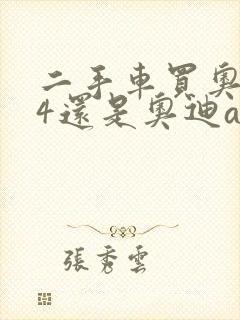 二手車買奧
4還是奧迪a
張秀雲